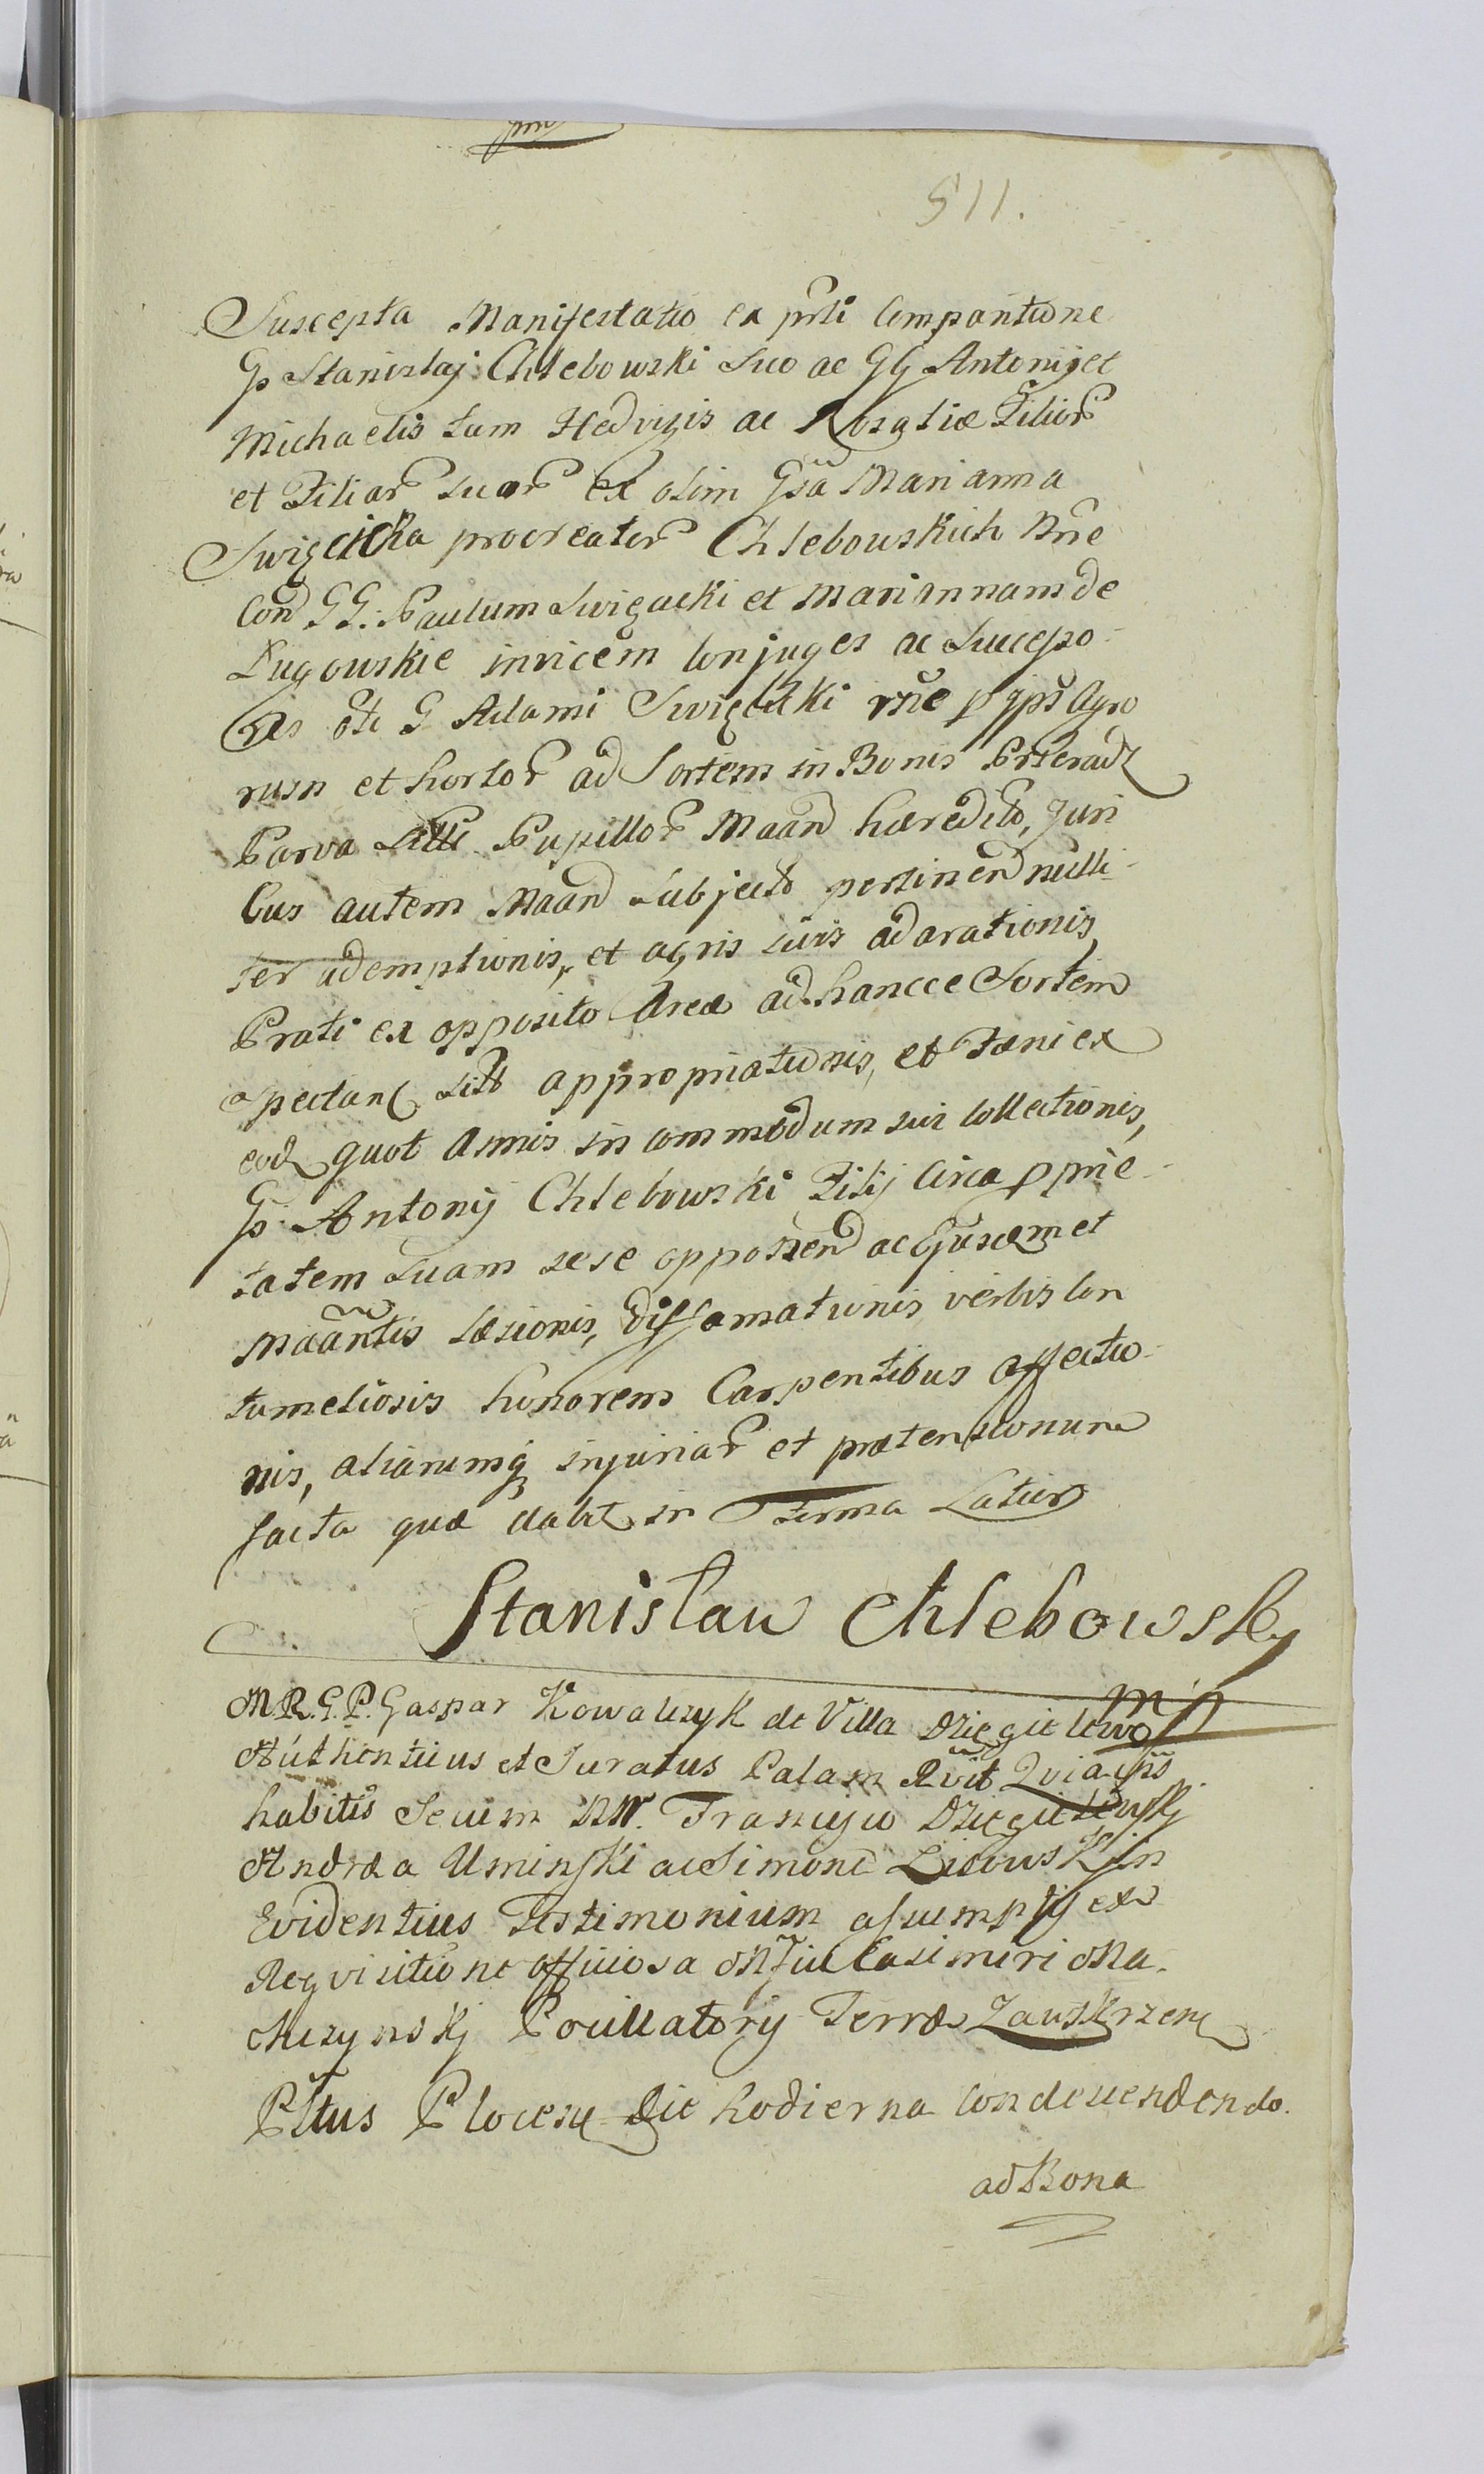 511.
Suscepta Manifestatio ex psti Compantione
Gsi Stanislaj Chlebowski Suo ac GG Antonij et
Michaelis tum Hedvigis ac Rosaliæ Filior
et Filiar Suar ex olim Gsa Marianna
Swięcicka procreator Chlebowskich Nne
Con GG. Paulum Swięcicki et Mariannam de
Ługowskie invicem Conjuges ac Successo-
res oli G Adami Swięcicki rne
rum et hortor ad Sortem in Bonis
Parva Pupillor Maan hæredito, Juri
Cus autem Maan Subject pertinen nulli-
ter ademptionis, et agris suis adarationis,
Prati ex opposito Areæ ad hancce Sortem
spectan appropriationis, et Fæni ex
eod quot Annis in commodum sui Collectionis,
Gsi Antonij Chlebowski Filij Circa pprie-
tatem Suam sese opponen ac Ejusdemet
Maantis Læsionis, diffamationis verbis Con
tumeliosis honorem Carpentibus affectio-
nis, aliarumq injuriar et prætensionum
facta quæ dabit in Terma Latius
Stanisław Chlebowsky
mp
M.R.G.P. Gaspar Kowalczyk de Villa Dzięgielewo
Authenticus et Juratus Palam Rvit Quia is
habitis Secum NN. Francisco Dzięgielewskj
Andrea Uminski ac Simone Lisowskj in
Evidentius Testimonium assumptis ex
Reqvisitione officiosa Mfici Casimiri Ma-
chczynskj Pocillatorij Terræ Zawskrzen
Pltus Plocen die hodierna Condescendendo.
ad Bona